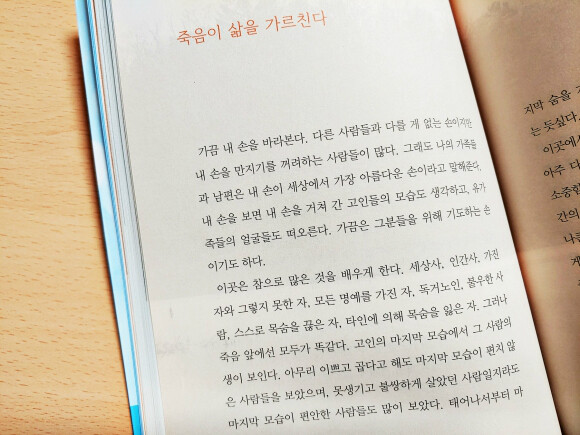 죽음이 삶을 가르친다
가끔 내 손을 바라본다. 다른 사람들과 다를 게 없는 손이지만
내 손을 만지기를 꺼려하는 사람들이 많다. 그래도 나의 가족들
과 남편은 내 손이 세상에서 가장 아름다운 손이라고 말해준다.
내 손을 보면 내 손을 거쳐 간 고인들의 모습도 생각하고, 유가
족들의 얼굴들도 떠오른다. 가끔은 그분들을 위해 기도하는 손
이기도 하다.
이곳은 참으로 많은 것을 배우게 한다. 세상사, 인간사. 가진
자와 그렇지 못한 자, 모든 명예를 가진 자, 독거노인, 불우한 사
람, 스스로 목숨을 끊은 자, 타인에 의해 목숨을 잃은 자. 그러나
죽음 앞에선 모두가 똑같다. 고인의 마지막 모습에서 그 사람의
생이 보인다. 아무리 이쁘고 곱다고 해도 마지막 모습이 편치 않
은 사람들을 보았으며, 못생기고 불쌍하게 살았던 사람일지라도
마지막 모습이 편안한 사람들도 많이 보았다. 태어나서부터 마
지막 숨을
는 듯싶다.
이곳에서
아주 다
소중함
간의
나를
게